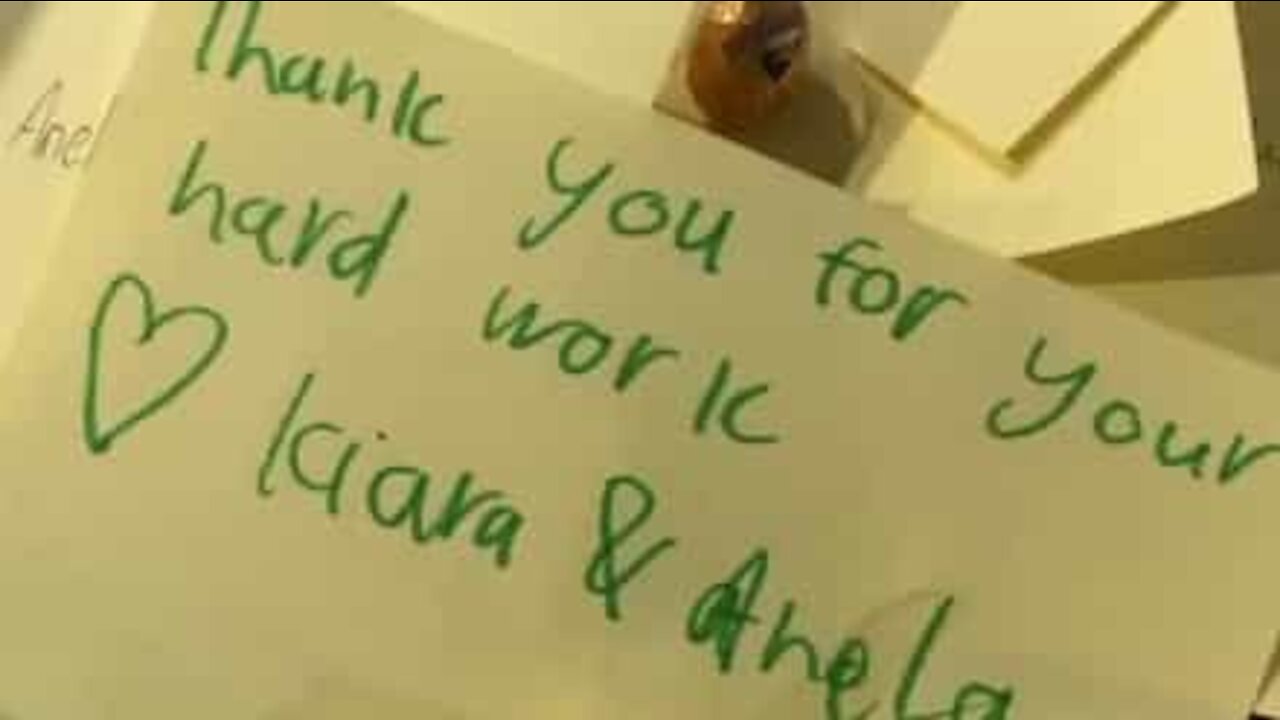 Anel
Thank you for your
hard work
♡ Kiara & Anela